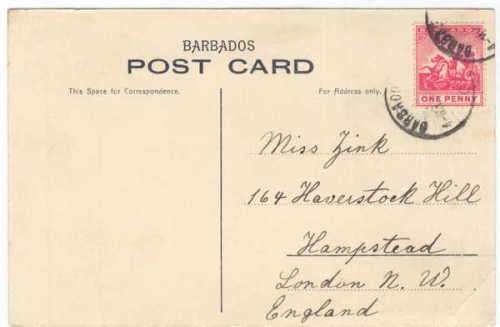 BARBADOS
POST CARD
This Space for Correspondence.
For Address only.
BARBADOS
ONE PENNY
BARBADOS
Miss Zink
164 Haverstock Hill
Hampstead
London N. W.
England